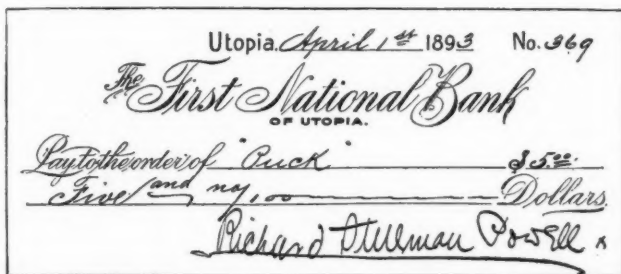 Utopia. April 1st 1893 No. 369
The First National Bank
OF UTOPIA.
Pay to the order of "Puck" $5.00
Five and no/100 Dollars
Richard Stillman Powell